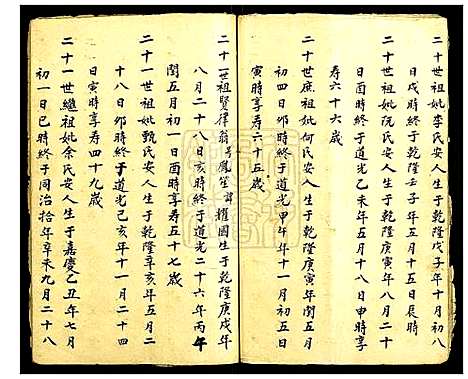 二十世祖妣李氏安人生于乾隆戊子年十月初八
日戌時終于乾隆壬子年五月十五日辰時
二十世祖妣阮氏安人生于乾隆庚寅年八月二十
日酉時終于道光乙未年五月十八日申時享
壽六十六歲
二十世庶祖妣何氏安人生于乾隆庚寅年閏五月
初四日卯時終于道光甲午年十一月初五日
寅時享壽六十五歲
二十一世祖賢律翁号鳳笙諱權國生于乾隆庚戌年
八月二十八日亥時終于道光二十六年丙午
閏五月初一日酉時享壽五十七歲
二十一世祖妣甄氏安人生于乾隆辛亥年五月二
十八日卯時終于道光己亥年十一月二十四
日寅時享壽四十九歲
二十一世繼祖妣余氏安人生于嘉慶乙丑年七月
初一日巳時終于同治拾年辛未九月二十八